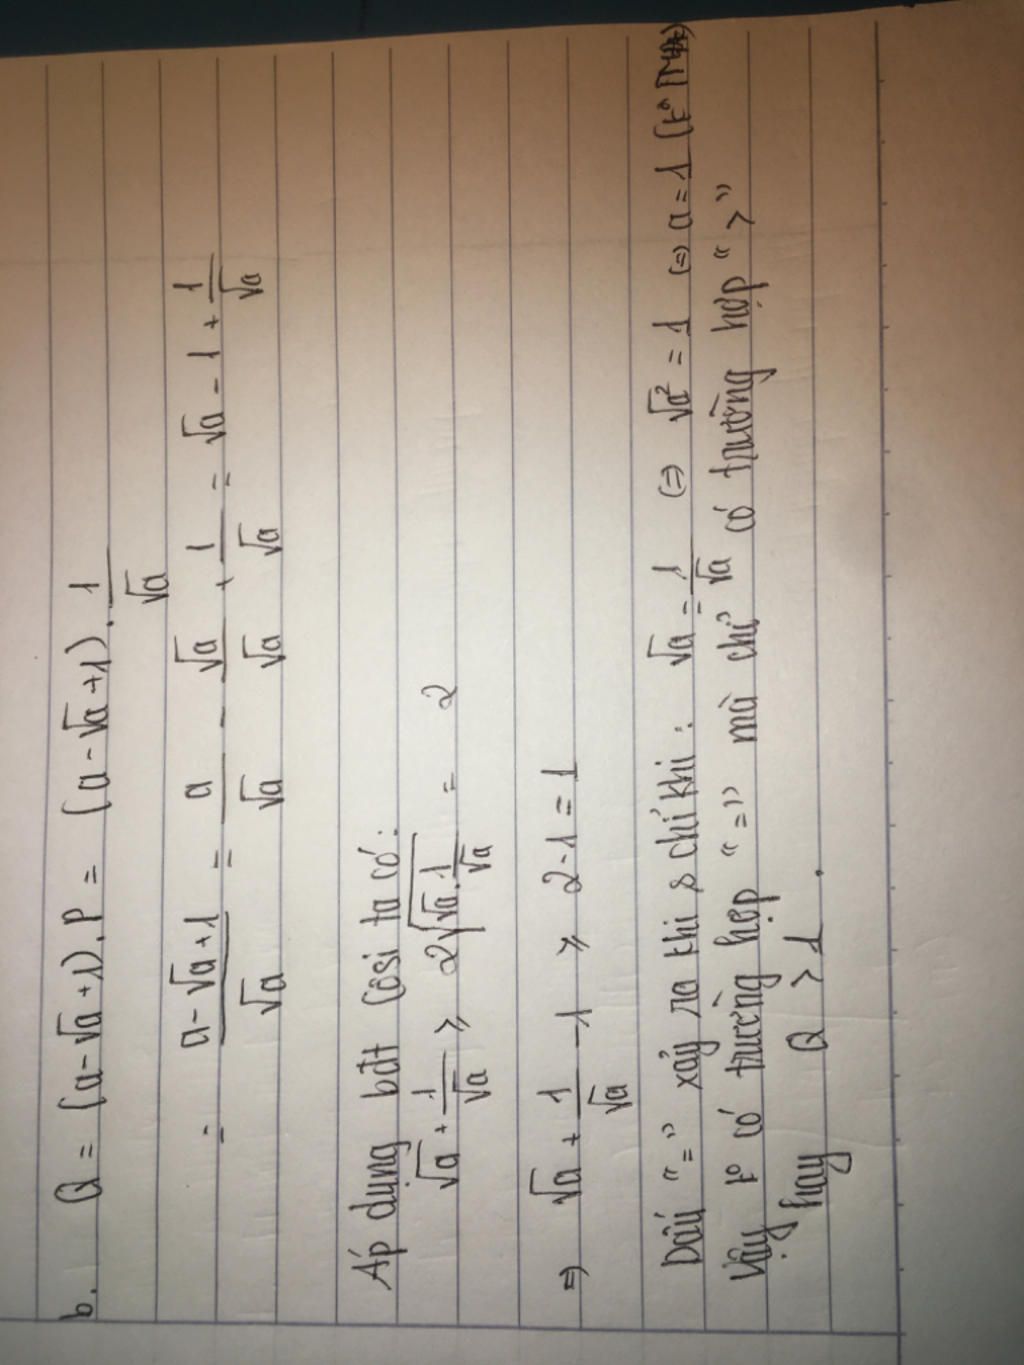 b. Q = (a-√a+1).P = (a-√a+1).1/√a
= a-√a+1/√a = a/√a - √a/√a + 1/√a = √a - 1 + 1/√a
Áp dụng bđt Côsi ta có:
√a + 1/√a ≥ 2√(√a.1/√a) = 2
⇒ √a + 1/√a - 1 ≥ 2-1 = 1
Dấu "=" xảy ra khi & chỉ khi: √a = 1/√a (=) √a² = 1 (=) a = 1 (k°
Vậy k° có trường hợp "=" mà chỉ có trường hợp ">"
hay Q > 1.